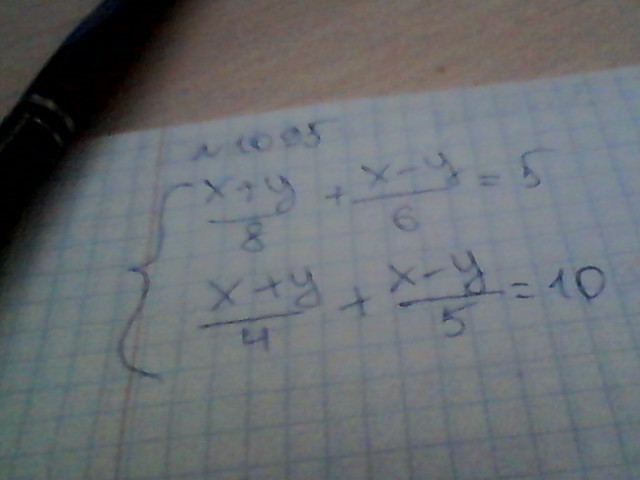 № 1095
{ (x+y)/8 + (x-y)/6 = 5
(x+y)/4 + (x-y)/5 = 10